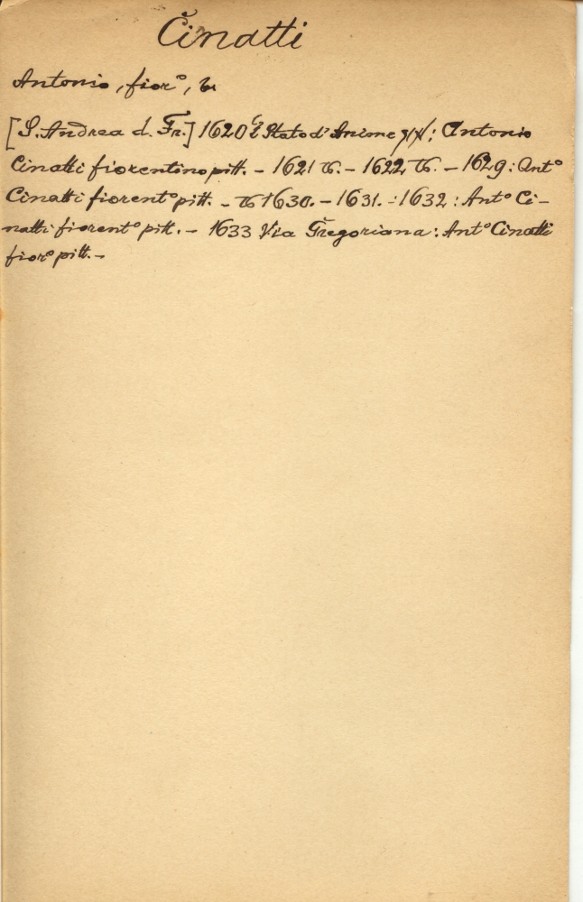 Cinatti
Antonio, fior.º,
[S. Andrea d. Fr.] 1620 Stato d'Anime; Antonio
Cinatti fiorentino pitt. - 1621 - 1622 - 1629: Antº
Cinatti fiorentº pitt. - 1630. - 1631. - 1632: Antº Ci-
natti fiorentº pitt. - 1633 Via Gregoriana: Antº Cinatti
fiorº pitt. -